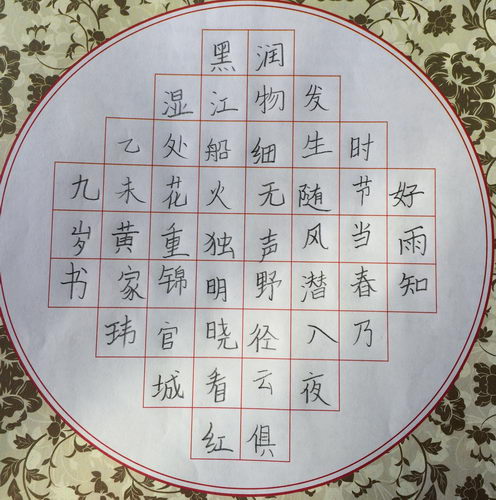 好雨知
时节当春乃
发生随风潜入夜
润物细无声野径云俱
黑江船火独明晓看红
湿处花重锦官城
乙未黄家玮
九岁书